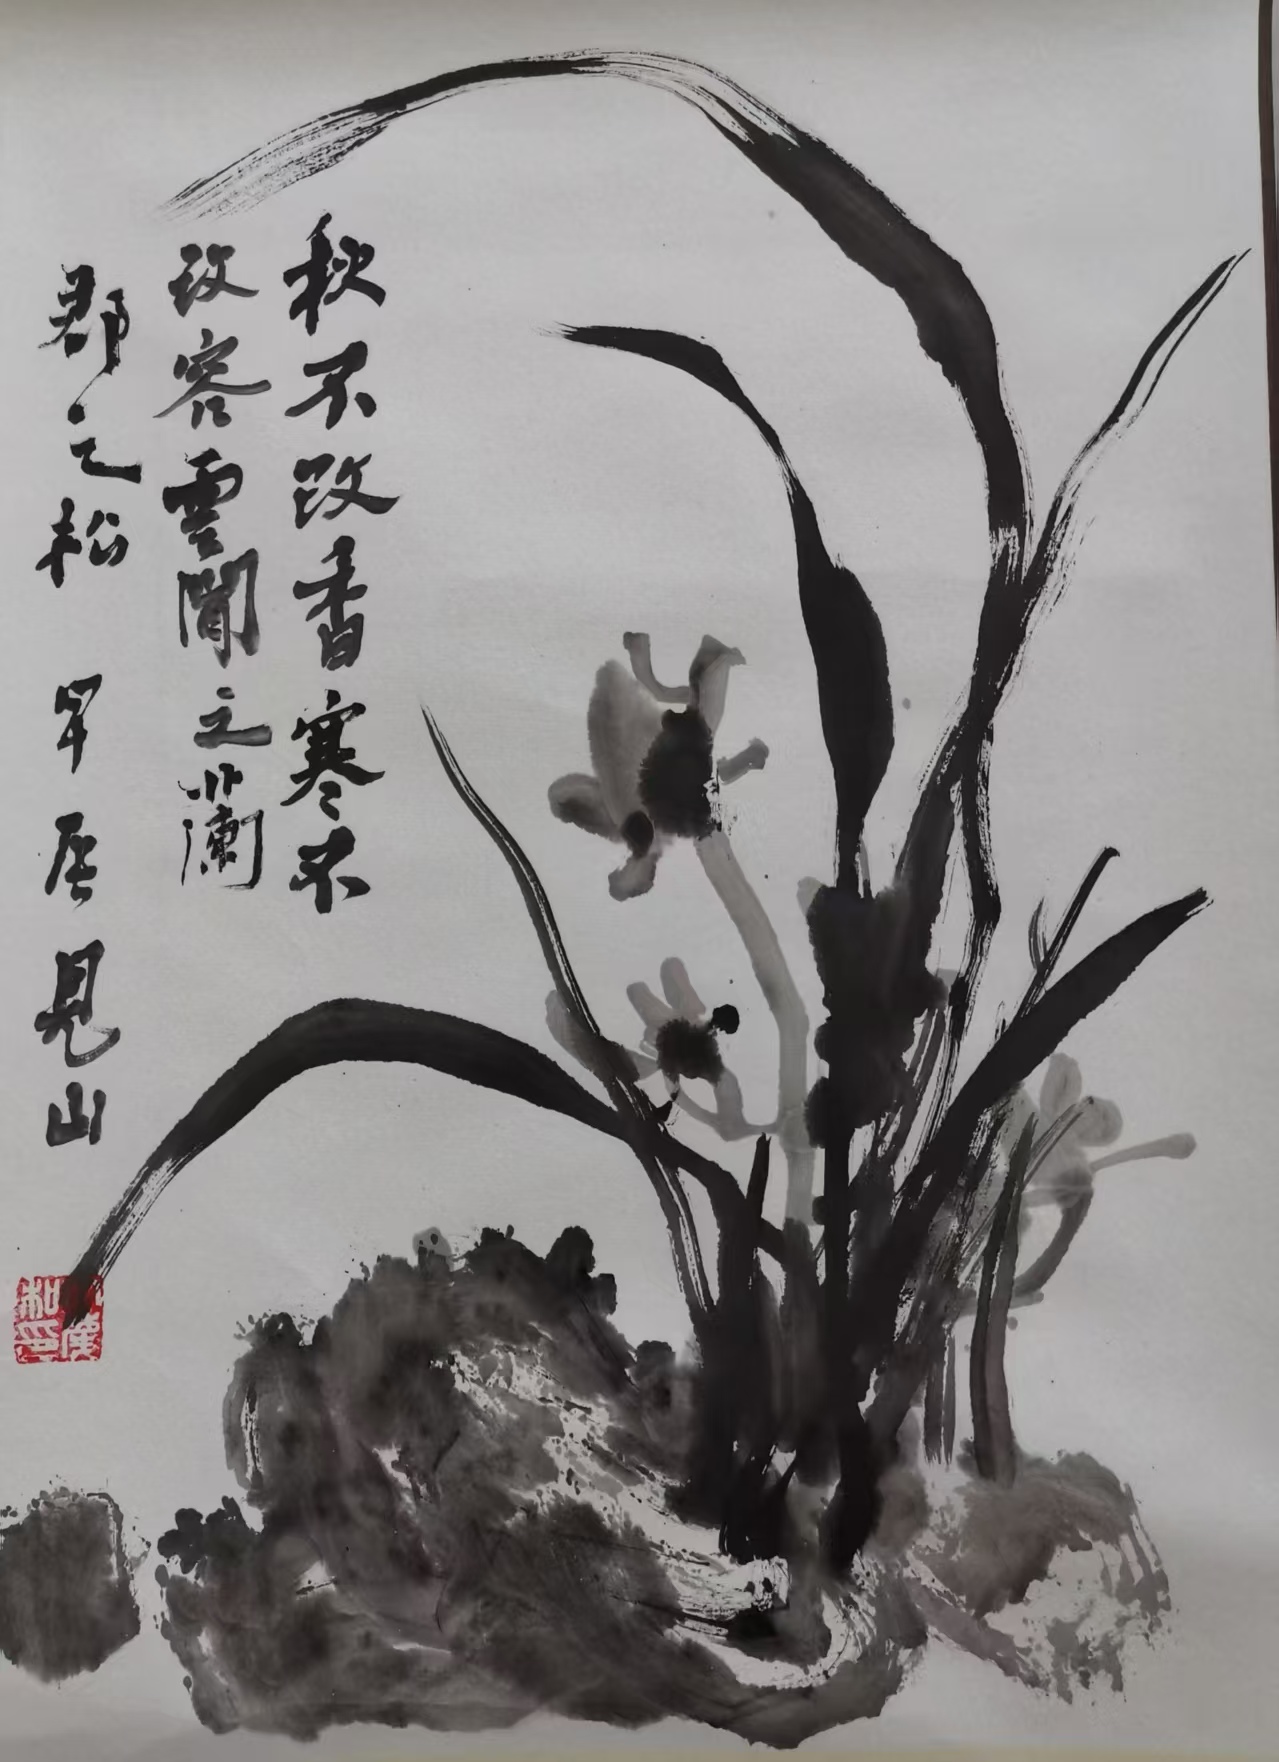 秋不改香寒不
改容雲閒之蘭
郡之松 甲辰 見山